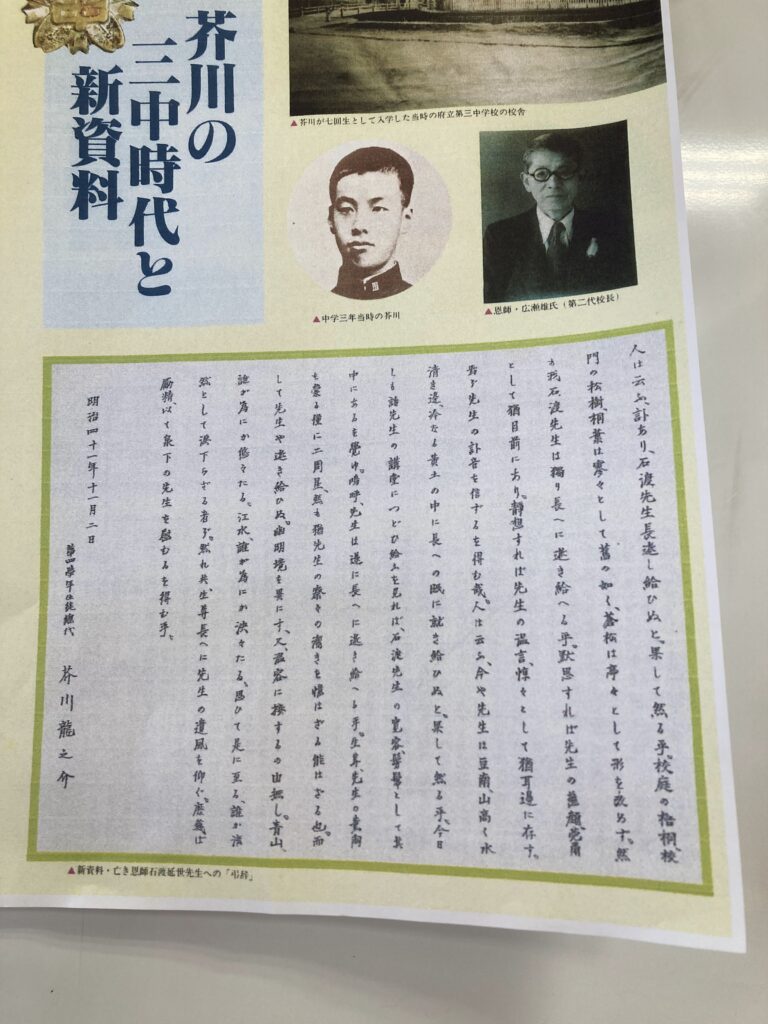 芥川の
三中時代と
新資料
▲芥川が七回生として入学した当時の府立第三中学校の校舎
▲中学三年当時の芥川
▲恩師・広瀬雄氏(第二代校長)
人は云ふ、訃あり、石渡先生長逝し給ひぬと。果して然る乎。校庭の梧桐、校
門の松樹、桐葉は寥々として舊の如く、蒼松は亭々として形を改めず。然
も我石渡先生は獨り長へに逝き給へる乎。默思すれば先生の
として猶目前にあり。靜想すれば先生の温言、惇々として猶耳邊に存す。
先生の訃音を信ずるを得む哉。人は云ふ、今や先生は豆南、山高く水
清き邊冷なる黄土の中に長への眠に就き給ひぬと。果して然る乎。今日
しも諸先生の講堂につどひ給ふを見れば、石渡先生の寛容、髣髴として其
中にあるを覺ゆ。嗚呼、先生は遂に長へに逝き給へる乎。生等、先生の薫陶
を蒙る僅に二周星、然も猶先生の
して先生や逝き給ひぬ。幽明境を異にす、又、温容に接するの由無し。青山、
誰が為にか悠々たる。江水、誰が為にか決々たる。思ひて是に至る、誰か泫
然として涙下らざる者ぞ。然れ共、生等長へに先生の遺風を仰ぐ。庶幾は
励精以て泉下の先生を慰むるを得む乎。
明治四十一年十一月二日
第四學年生徒總代 芥川龍之介
▲新資料・亡き恩師石渡延世先生への「弔辞」